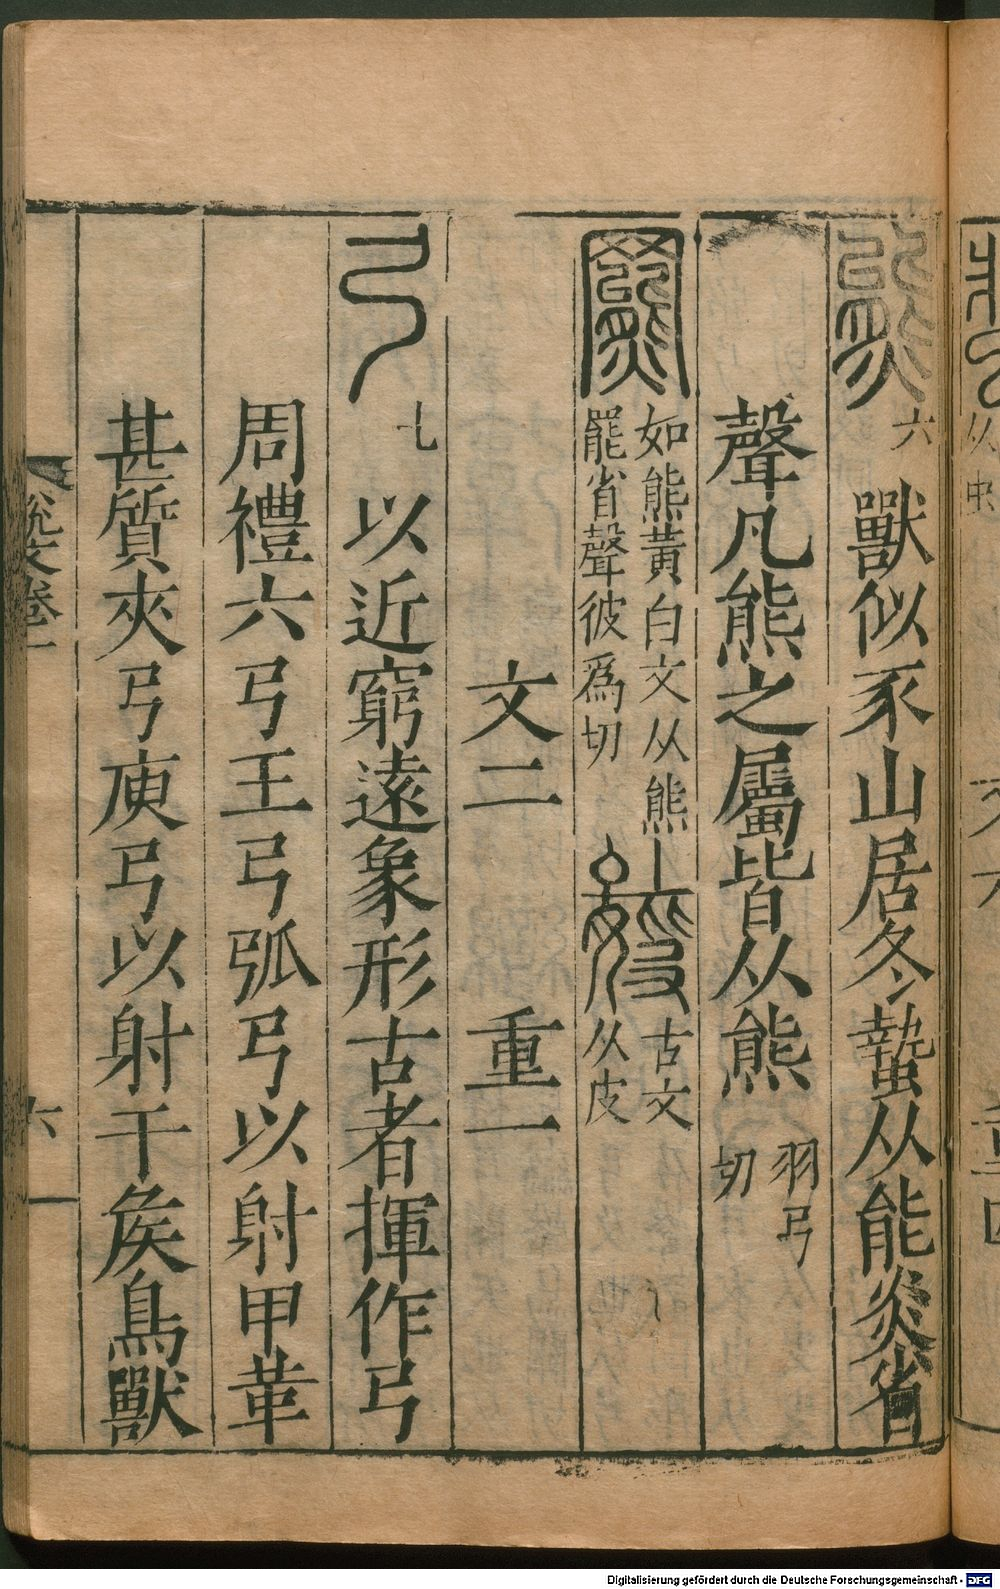 熊 六 獸似豕山居冬蟄从能炎省
聲凡熊之屬皆从熊 羽弓切
羆 如熊黃白文从熊罷省聲彼爲切 古文从皮
文二 重一
弓 七 以近窮遠象形古者揮作弓
周禮六弓王弓弧弓以射甲革
甚質夾弓庾弓以射干矦鳥獸
說文卷 六
Digitalisierung gefördert durch die Deutsche Forschungsgemeinschaft - DFG